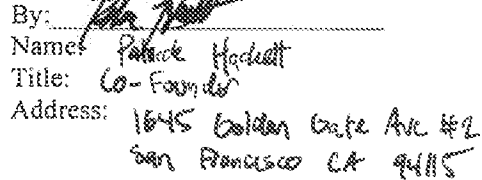 By:
Name: Patrick Hackett
Title: Co-Founder
Address: 1645 Golden Gate Ave #2
San Francisco CA 94115